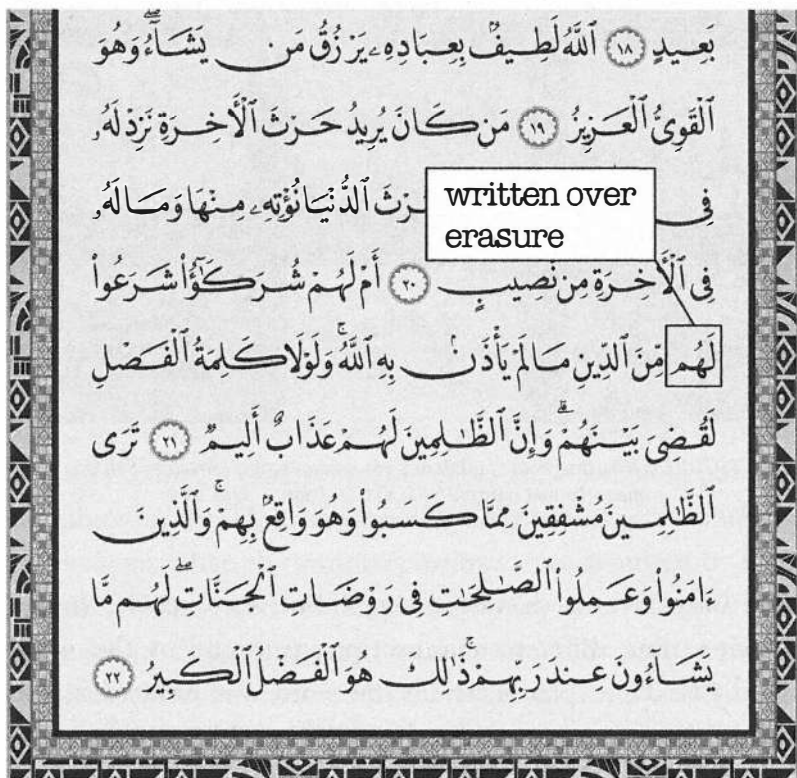 بَعِيدٍ ١٨ ٱللَّهُ لَطِيفٌۢ بِعِبَادِهِۦ يَرْزُقُ مَن يَشَآءُۖ وَهُوَ
ٱلْقَوِىُّ ٱلْعَزِيزُ ١٩ مَن كَانَ يُرِيدُ حَرْثَ ٱلْـَٔاخِرَةِ نَزِدْ لَهُۥ
فِى رْثَ ٱلدُّنْيَا نُؤْتِهِۦ مِنْهَا وَمَا لَهُۥ
written over
erasure
فِى ٱلْـَٔاخِرَةِ مِن نَّصِيبٍ ٢٠ أَمْ لَهُمْ شُرَكَٰٓؤُا۟ شَرَعُوا۟
لَهُم مِّنَ ٱلدِّينِ مَا لَمْ يَأْذَنۢ بِهِ ٱللَّهُۚ وَلَوْلَا كَلِمَةُ ٱلْفَصْلِ
لَقُضِىَ بَيْنَهُمْۗ وَإِنَّ ٱلظَّٰلِمِينَ لَهُمْ عَذَابٌ أَلِيمٌ ٢١ تَرَى
ٱلظَّٰلِمِينَ مُشْفِقِينَ مِمَّا كَسَبُوا۟ وَهُوَ وَاقِعٌۢ بِهِمْۗ وَٱلَّذِينَ
ءَامَنُوا۟ وَعَمِلُوا۟ ٱلصَّٰلِحَٰتِ فِى رَوْضَاتِ ٱلْجَنَّاتِۖ لَهُم مَّا
يَشَآءُونَ عِندَ رَبِّهِمْۚ ذَٰلِكَ هُوَ ٱلْفَضْلُ ٱلْكَبِيرُ ٢٢